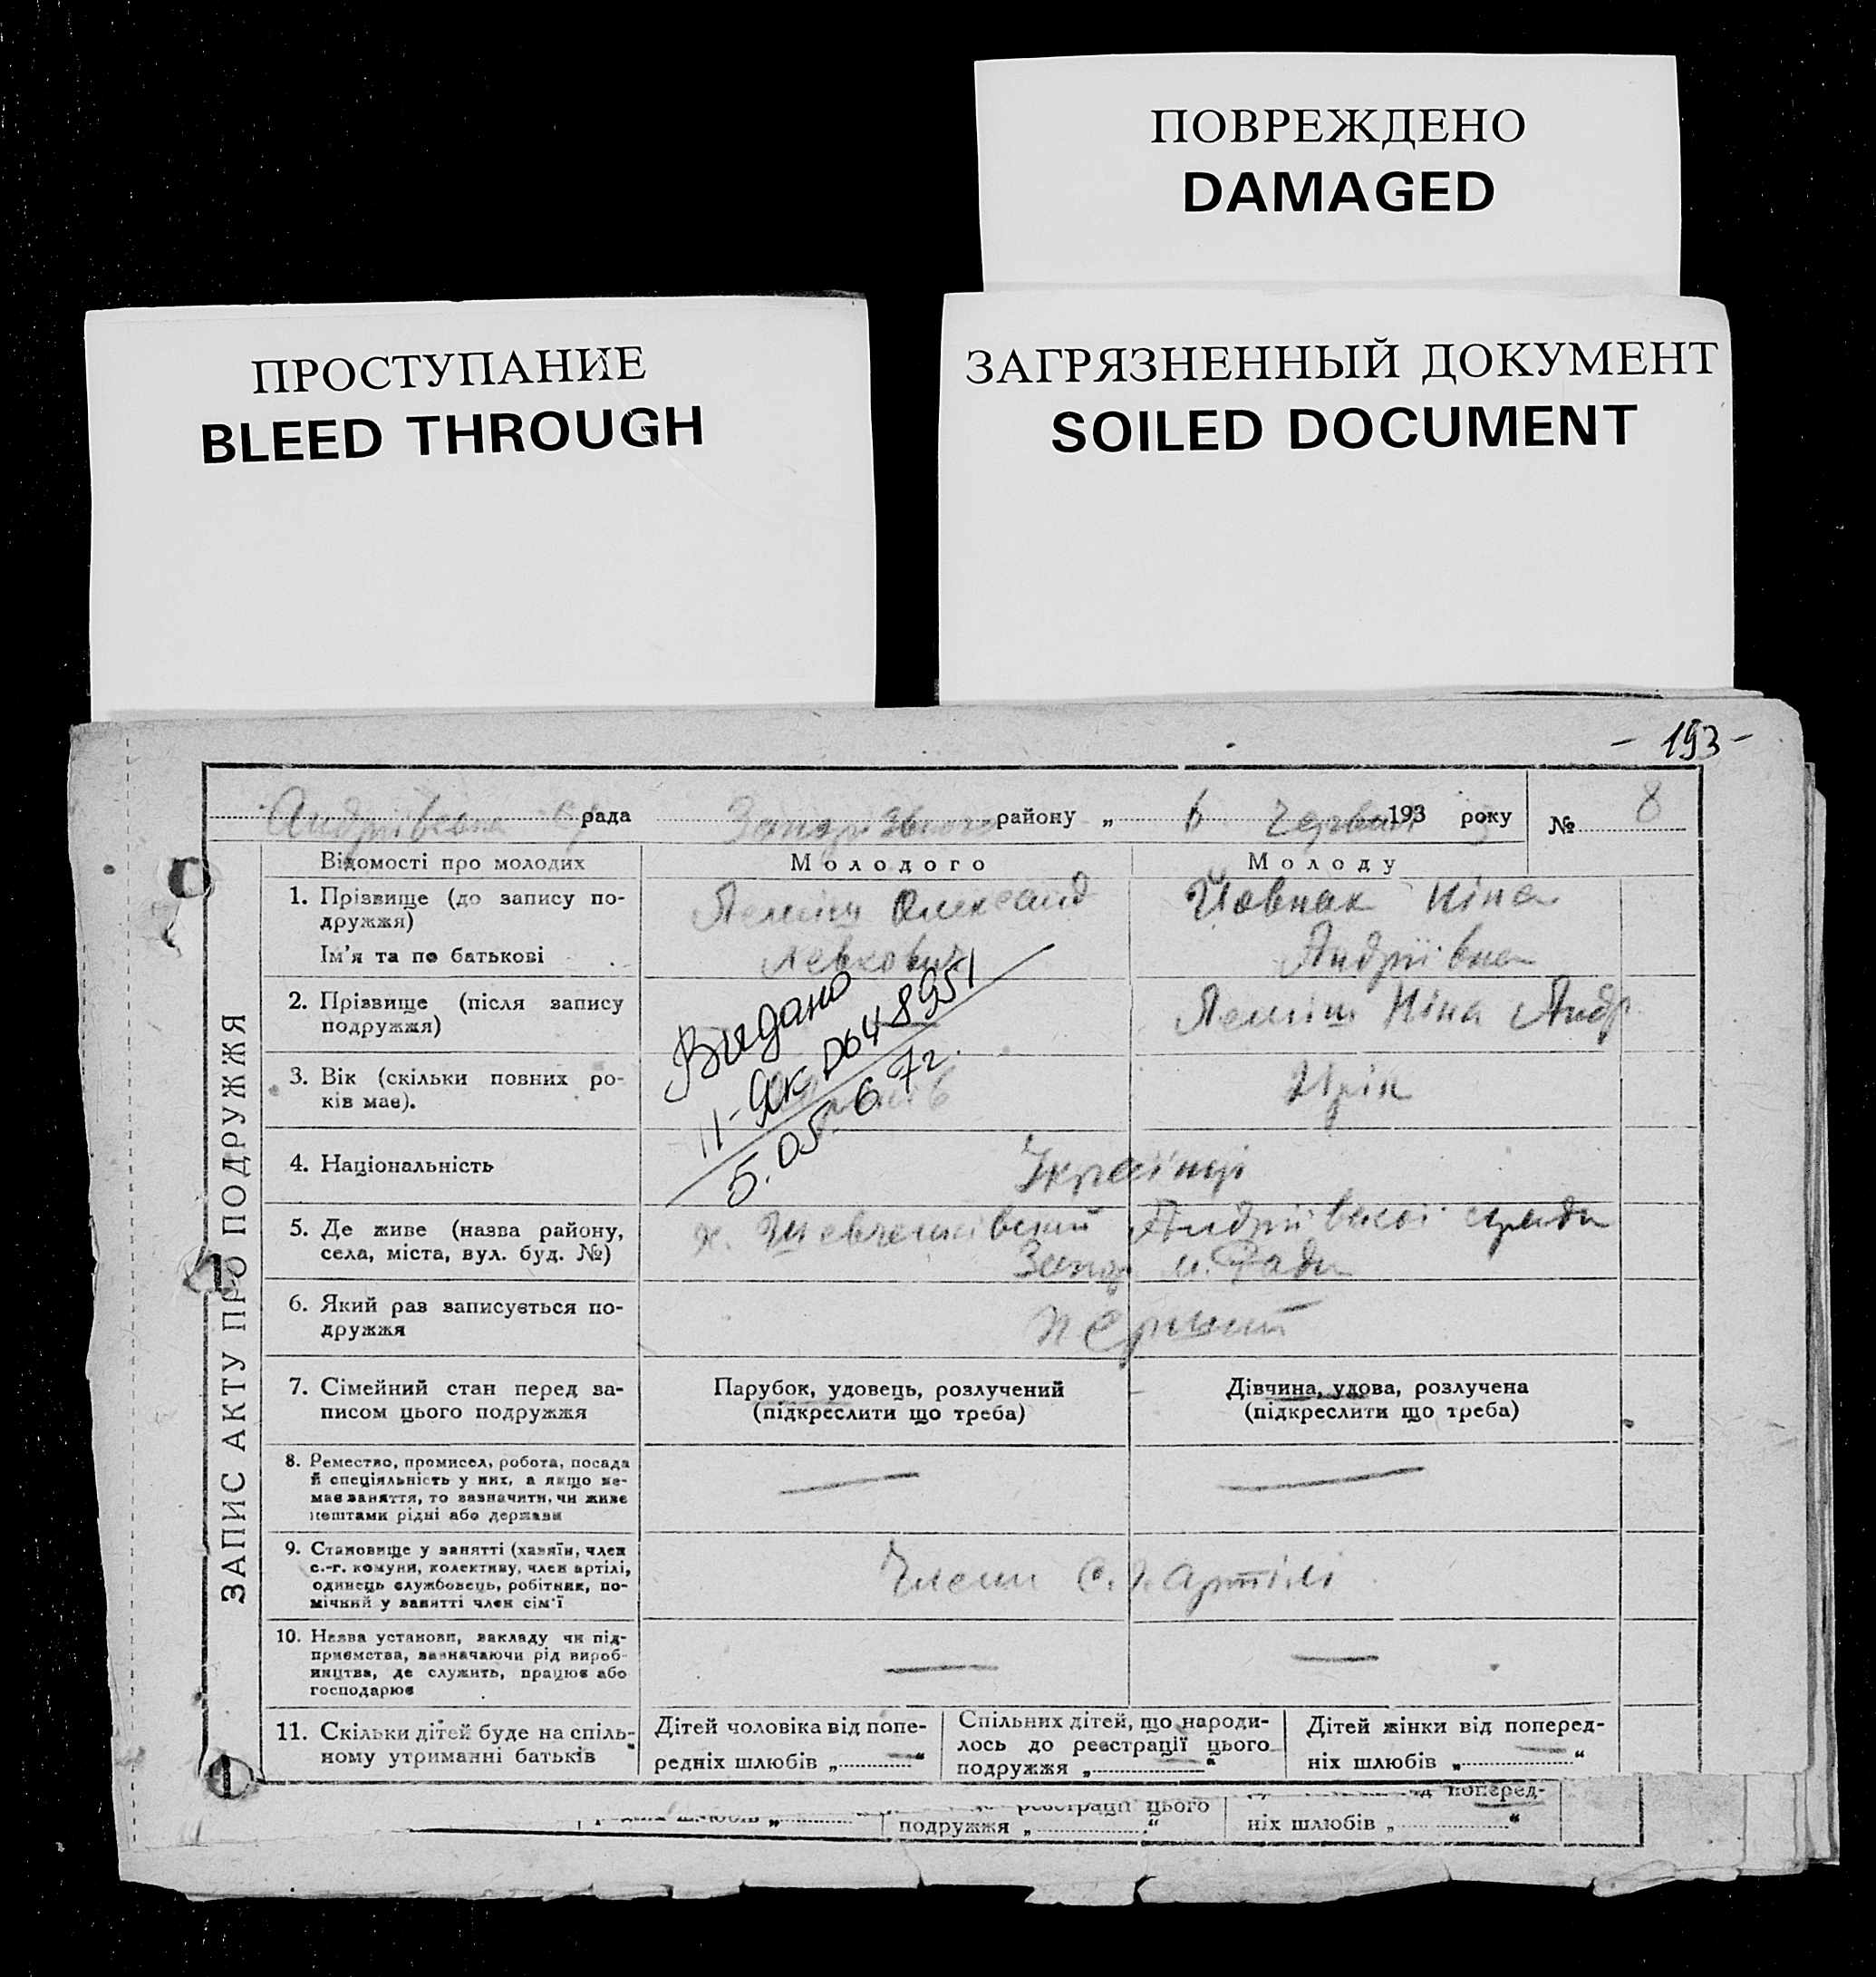 ПОВРЕЖДЕНО
DAMAGED
ПРОСТУПАНИЕ
BLEED THROUGH
ЗАГРЯЗНЕННЫЙ ДОКУМЕНТ
SOILED DOCUMENT
- 193 -
рада району „ 6 Червня 193 року № 8
Відомості про молодих Молодого Молоду
ЗАПИС АКТУ ПРО ПОДРУЖЖЯ
1. Прізвище (до запису по-
дружжя)
Ім'я та по батькові
Леміш Олександ
Левкович
Ніна
Андріївна
2. Прізвище (після запису
подружжя)
Леміш Ніна Андр.
Видано
II-ЯК № 648951
5.05.67г.
3. Вік (скільки повних ро-
ків має).
4. Національність
Українці
5. Де живе (назва району,
села, міста, вул. буд. №)
х. Шевченківський Андріївської с/ради
Запор. м. Ради
6. Який раз записується по-
дружжя
перший
7. Сімейний стан перед за-
писом цього подружжя
Парубок, удовець, розлучений
(підкреслити що треба)
Дівчина, удова, розлучена
(підкреслити що треба)
8. Ремество, промисел, робота, посада
й спеціяльність у них, а якщо не-
має заняття, то зазначити, чи живе
коштами рідні або держави
9. Становище у занятті (хазяїн, член
с.-г. комуни, колективу, член артілі,
одинець службовець, робітник, по-
мічний у занятті член сім'ї
Члени с.г. артілі
10. Назва установи, закладу чи під-
приємства, зазначаючи рід вироб-
ництва, де служить, працює або
господарює
11. Скільки дітей буде на спіль-
ному утриманні батьків
Дітей чоловіка від попе-
редніх шлюбів „ “
Спільних дітей, що народи-
лось до реєстрації цього
подружжя „ “
Дітей жінки від поперед-
ніх шлюбів „ “
поперед-
реєстрації цього
подружжя „ “
ніх шлюбів „ “